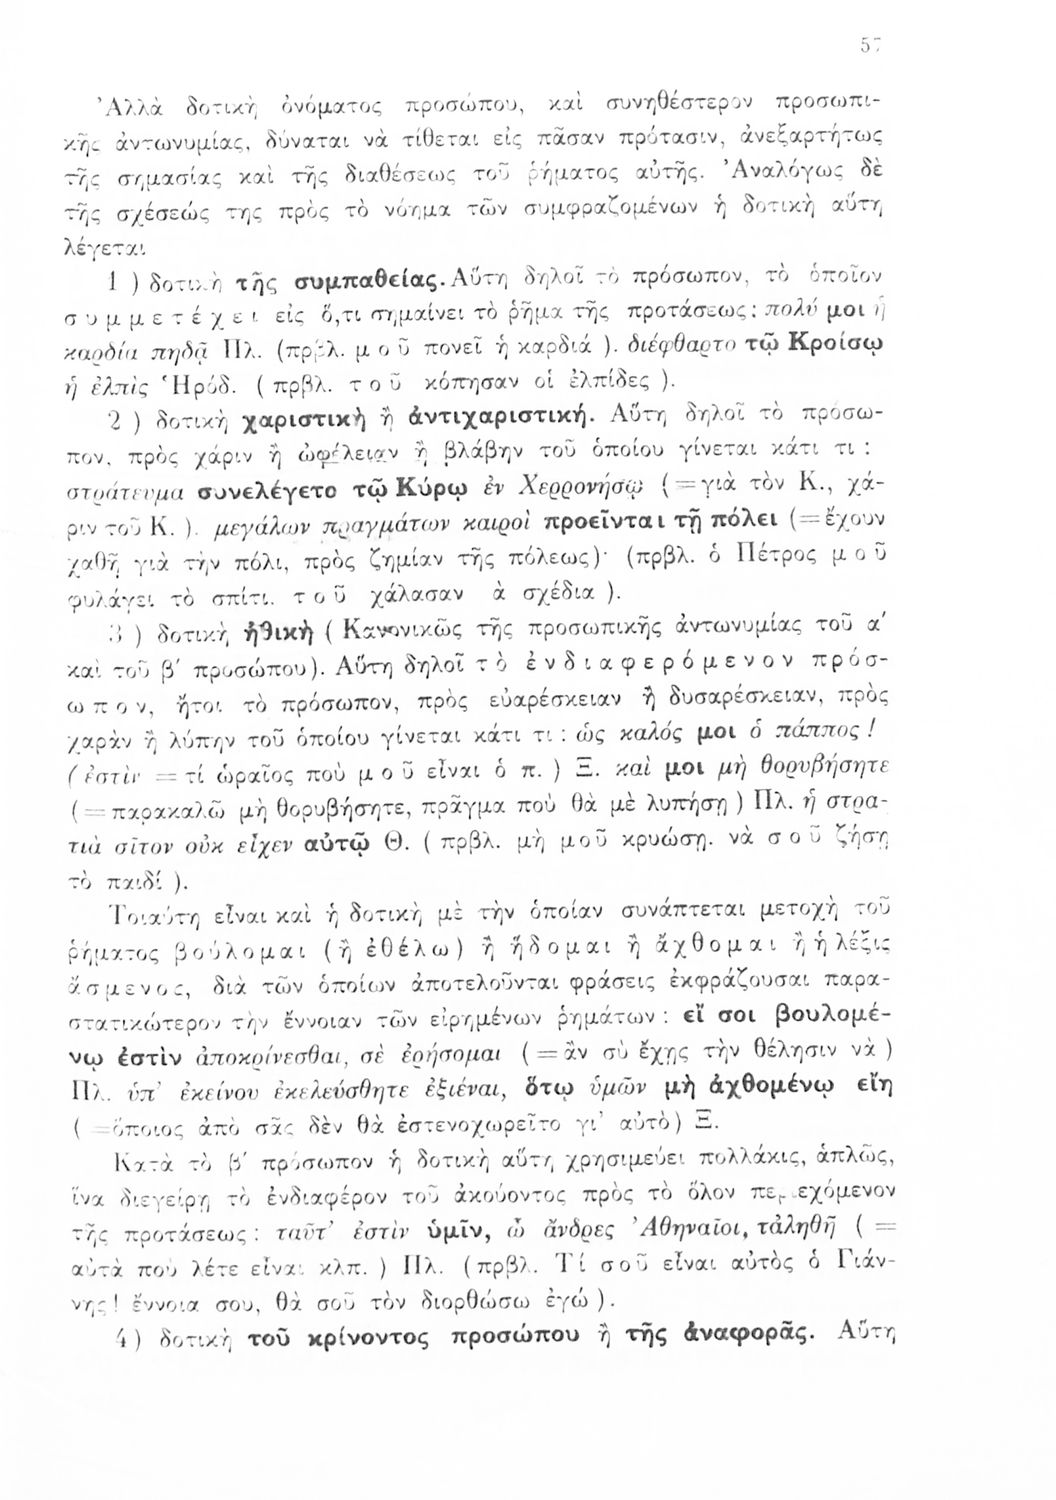 57
Ἀλλὰ δοτικὴ ὀνόματος προσώπου, καὶ συνηθέστερον προσωπι-
κῆς ἀντωνυμίας, δύναται νὰ τίθεται εἰς πᾶσαν πρότασιν, ἀνεξαρτήτως
τῆς σημασίας καὶ τῆς διαθέσεως τοῦ ῥήματος αὐτῆς. Ἀναλόγως δὲ
τῆς σχέσεώς της πρὸς τὸ νόημα τῶν συμφραζομένων ἡ δοτικὴ αὕτη
λέγεται
1 ) δοτικὴ τῆς συμπαθείας. Αὕτη δηλοῖ τὸ πρόσωπον, τὸ ὁποῖον
σ υ μ μ ε τ έ χ ε ι εἰς ὅ,τι σημαίνει τὸ ῥῆμα τῆς προτάσεως: πολύ μοι ἡ
καρδία πηδᾷ Πλ. (πρβλ. μ ο ῦ πονεῖ ἡ καρδιά ). διέφθαρτο τῷ Κροίσῳ
ἡ ἐλπὶς Ἡρόδ. ( πρβλ. τ ο ῦ κόπησαν οἱ ἐλπίδες ).
2 ) δοτικὴ χαριστικὴ ἢ ἀντιχαριστική. Αὕτη δηλοῖ τὸ πρόσω-
πον, πρὸς χάριν ἢ ὠφέλειαν ἢ βλάβην τοῦ ὁποίου γίνεται κάτι τι :
στράτευμα συνελέγετο τῷ Κύρῳ ἐν Χερρονήσῳ ( = γιὰ τὸν Κ., χά-
ριν τοῦ Κ. ). μεγάλων πραγμάτων καιροὶ προεῖνται τῇ πόλει (= ἔχουν
χαθῆ γιὰ τὴν πόλι, πρὸς ζημίαν τῆς πόλεως)· (πρβλ. ὁ Πέτρος μ ο ῦ
φυλάγει τὸ σπίτι. τ ο ῦ χάλασαν ὰ σχέδια ).
3 ) δοτικὴ ἠθικὴ ( Κανονικῶς τῆς προσωπικῆς ἀντωνυμίας τοῦ α′
καὶ τοῦ β′ προσώπου). Αὕτη δηλοῖ τ ὸ ἐ ν δ ι α φ ε ρ ό μ ε ν ο ν π ρ ό σ-
ω π ο ν, ἤτοι τὸ πρόσωπον, πρὸς εὐαρέσκειαν ἢ δυσαρέσκειαν, πρὸς
χαρὰν ἢ λύπην τοῦ ὁποίου γίνεται κάτι τι : ὡς καλός μοι ὁ πάππος !
( ἐστὶν = τί ὡραῖος ποὺ μ ο ῦ εἶναι ὁ π. ) Ξ. καὶ μοι μὴ θορυβήσητε
( = παρακαλῶ μὴ θορυβήσητε, πρᾶγμα ποὺ θὰ μὲ λυπήσῃ ) Πλ. ἡ στρα-
τιὰ σῖτον οὐκ εἶχεν αὐτῷ Θ. ( πρβλ. μὴ μ ο ῦ κρυώσῃ. νὰ σ ο ῦ ζήσῃ
τὸ παιδί ).
Τοιαύτη εἶναι καὶ ἡ δοτικὴ μὲ τὴν ὁποίαν συνάπτεται μετοχὴ τοῦ
ῥήματος β ο ύ λ ο μ α ι ( ἢ ἐ θ έ λ ω ) ἢ ἥ δ ο μ α ι ἢ ἄ χ θ ο μ α ι ἢ ἡ λέξις
ἄ σ μ ε ν ο ς, διὰ τῶν ὁποίων ἀποτελοῦνται φράσεις ἐκφράζουσαι παρα-
στατικώτερον τὴν ἔννοιαν τῶν εἰρημένων ῥημάτων : εἴ σοι βουλομέ-
νῳ ἐστὶν ἀποκρίνεσθαι, σὲ ἐρήσομαι ( = ἂν σὺ ἔχῃς τὴν θέλησιν νὰ )
Πλ. ὑπ' ἐκείνου ἐκελεύσθητε ἐξιέναι, ὅτῳ ὑμῶν μὴ ἀχθομένῳ εἴη
( = ὅποιος ἀπὸ σᾶς δὲν θὰ ἐστενοχωρεῖτο γι' αὐτὸ) Ξ.
Κατὰ τὸ β′ πρόσωπον ἡ δοτικὴ αὕτη χρησιμεύει πολλάκις, ἁπλῶς,
ἵνα διεγείρῃ τὸ ἐνδιαφέρον τοῦ ἀκούοντος πρὸς τὸ ὅλον περιεχόμενον
τῆς προτάσεως : ταῦτ' ἐστὶν ὑμῖν, ὦ ἄνδρες Ἀθηναῖοι, τἀληθῆ ( =
αὐτὰ ποὺ λέτε εἶναι κλπ. ) Πλ. (πρβλ. Τί σ ο ῦ εἶναι αὐτὸς ὁ Γιάν-
νης! ἔννοια σου, θὰ σοῦ τὸν διορθώσω ἐγώ ).
4 ) δοτικὴ τοῦ κρίνοντος προσώπου ἢ τῆς ἀναφορᾶς. Αὕτη